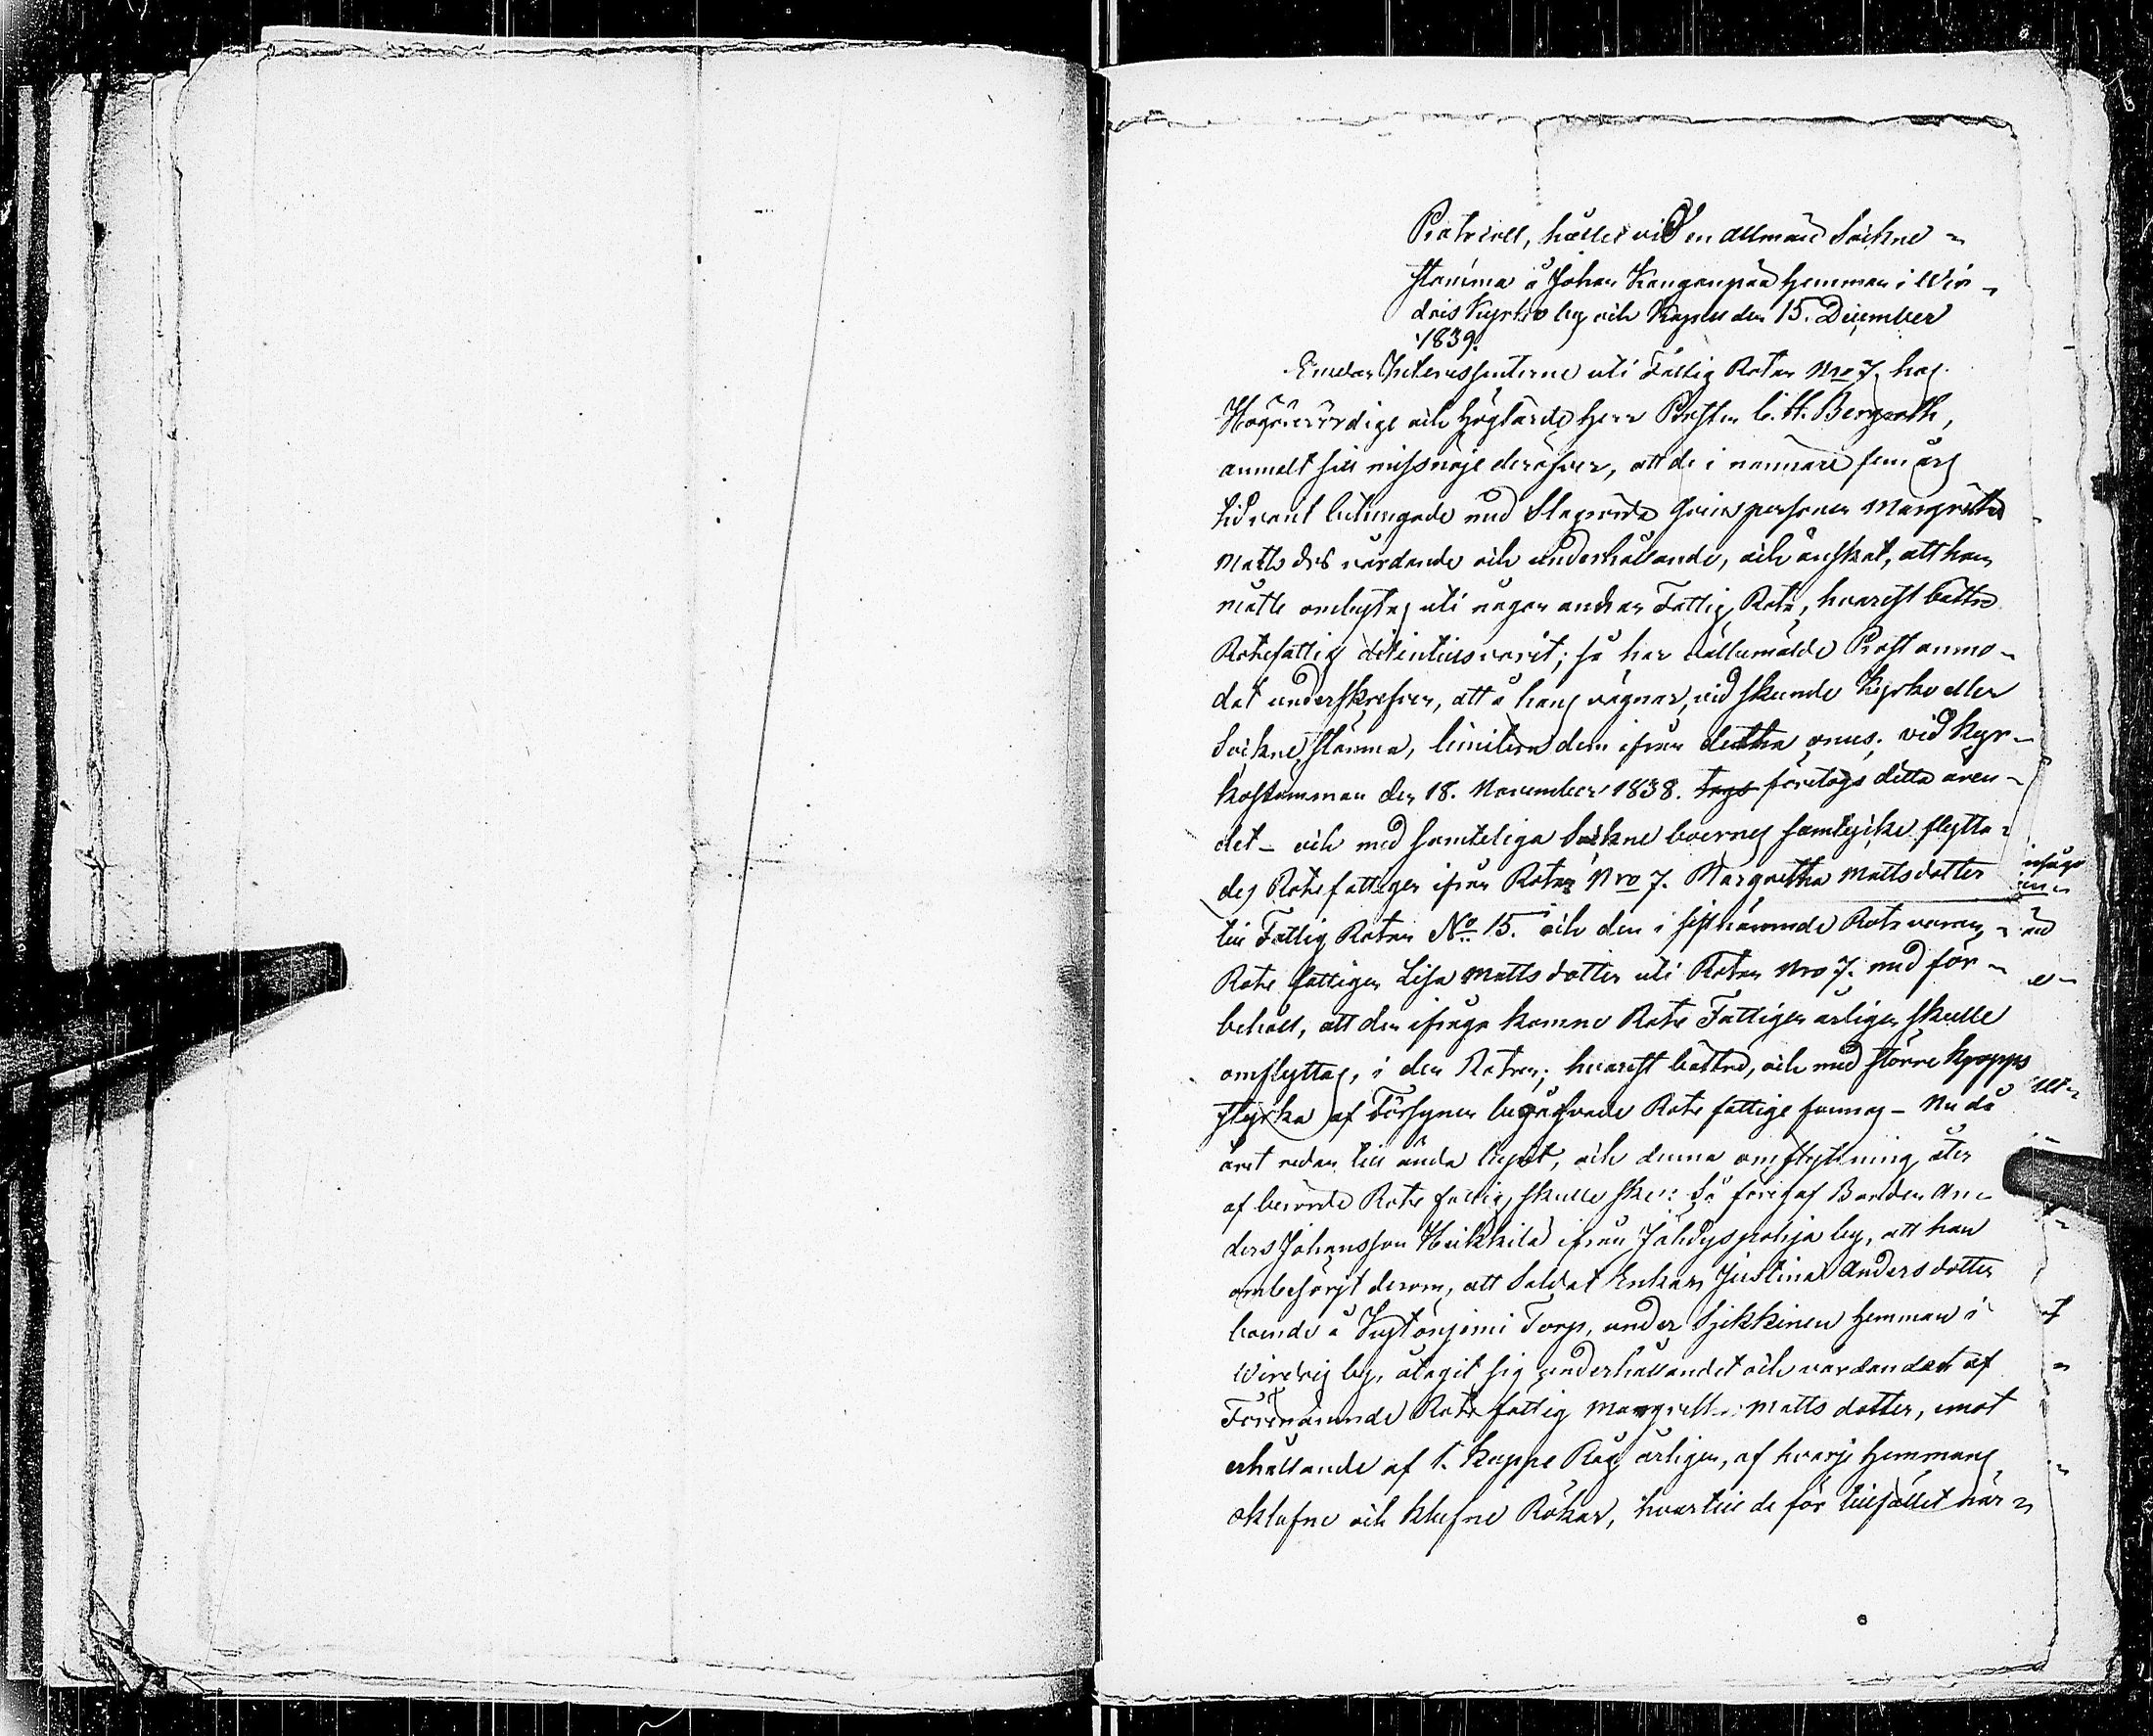 Protocoll, hållet vid en allmän Sockne-
stämma å Johan Kanganpää Hemman i Vir-
dois Kyrko by och Kapell den 15. December
1839.
Emedan Interessenterne uti Fattig Rotan Nro 7. hos
Högärevördige och Höglärde Herr Prosten C. H. Bergroth,
anmält sitt missnöje deröfver, att de i nannare fem års
tid varit betungade med Slagrörda Qvinspersonen Margretha
Matts dr:s vårdande och underhållande, och önskat, att hon
måtte ombytas uti någon andran Fattig Rota, hvarest bättre
Rotefattig varit; så har välbemälde Prost anmo-
dat underskrefven, att å hans vägnar, vid skeende Kyrko eller
Sockne stämma, dem ifrån detta onus; vid Kyr-
kostämman den 18. November 1838. togs företogs detta ären-
det - och med samteliga Sockne boernes samtycke flytta-
des Rotefattigen ifrån Rotan Nro 7. Margretha Mattsdotter
till Fattig Rotan No 15. och den i sistnämnde Rote varan-
Rote fattigen Lisa Mattsdotter uti Rotan Nro 7. med för-
behåll, att den ifråga komne Rote Fattigen årligen skulle
omflyttas, i den Rotan; hvarest bättre, och med större kropps
styrka af Försynen begåfvade Rote fattige funnes - Nu då
året redan till ända lupit, och denna omflyttning åter
af berörde Rote fattig skulle ske: Så föregaf Bonden An-
ders Johansson Heikkilä ifrån Jähdyspohja by, att han
ombesörjt derom, att Soldat Enkan Justina Andersdotter
boende å Torp, under Sjekkinen Hemman i
Virdois by, åtagit sig underhållandet och vårdandet af
Förenämnde Rote fattig Margretha Matts dotter, emot
erhållande af 1. kappe Råg årligen, af hvarje Hemmans
oklufne och klufne Rökar, hvartill de för tillfället när-